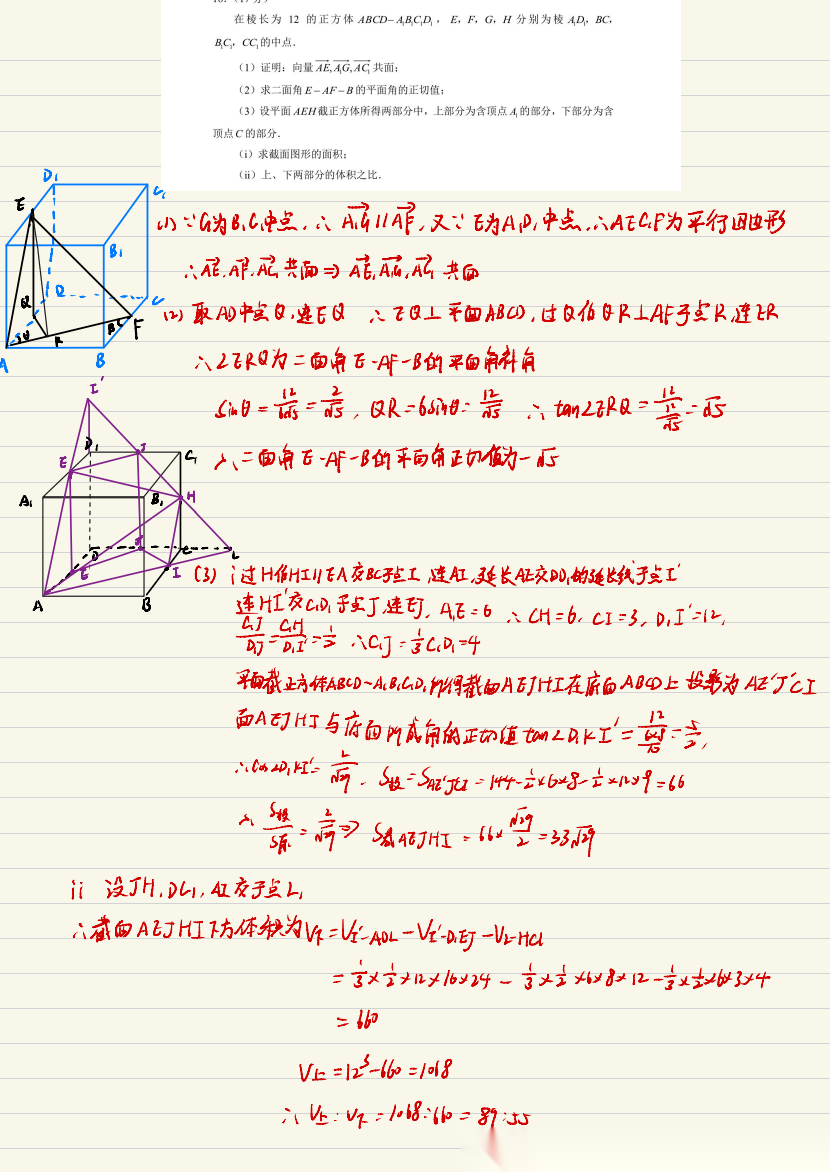 在棱长为 12 的正方体 ABCD－A₁B₁C₁D₁，E，F，G，H 分别为棱 A₁D₁，BC，
B₁C₁，CC₁的中点．
（1）证明：向量 AE, A₁G, AC₁ 共面；
（2）求二面角 E－AF－B 的平面角的正切值；
（3）设平面 AEH 截正方体所得两部分中，上部分为含顶点 A₁ 的部分，下部分为含
顶点 C 的部分．
（i）求截面图形的面积；
（ii）上、下两部分的体积之比．
(1) ∵G为B₁C₁中点，∴ A₁G∥AF，又∵E为A₁D₁中点，∴AEC₁F为平行四边形
∴AE, AF, AC₁ 共面⇒AE, A₁G, AC₁ 共面
(2) 取AD中点Q，连EQ ∴EQ⊥平面ABCD，过Q作QR⊥AF于点R，连ER
∴∠ERQ为二面角E-AF-B的平面角补角
sinθ=12/6√5=2/√5，QR=6sinθ=12/√5 ∴tan∠ERQ=12/(12/√5)=√5
∴二面角E-AF-B的平面角正切值为-√5
(3) i 过H作HI∥EA交BC于点I，连AI，延长AE交DD₁的延长线于点I'
连HI'交C₁D₁于点J，连EJ，A₁E=6 ∴CH=6，CI=3，D₁I'=12，
C₁J/D₁J=C₁H/D₁I'=1/2 ∴C₁J=1/3C₁D₁=4
平面截正方体ABCD-A₁B₁C₁D₁所得截面AEJHI在底面ABCD上投影为AE'J'CI
面AEJHI与底面所成角的正切值tan∠D₁KI'=12/(6×8/10)=5/2，
∴cos∠D₁KI'=2/√29，S投=SAE'J'CI=144-1/2×6×8-1/2×12×9=66
∴S投/S原=2/√29⇒S截AEJHI=66×√29/2=33√29
ii 设JH，DC，AI交于点L，
∴截面AEJHI下方体积为V下=VI'-ADL-VI'-D₁EJ-VL-HCI
=1/3×1/2×12×16×24-1/3×1/2×6×8×12-1/3×1/2×6×3×4
=660
V上=12³-660=1068
∴V上:V下=1068:660=89:55